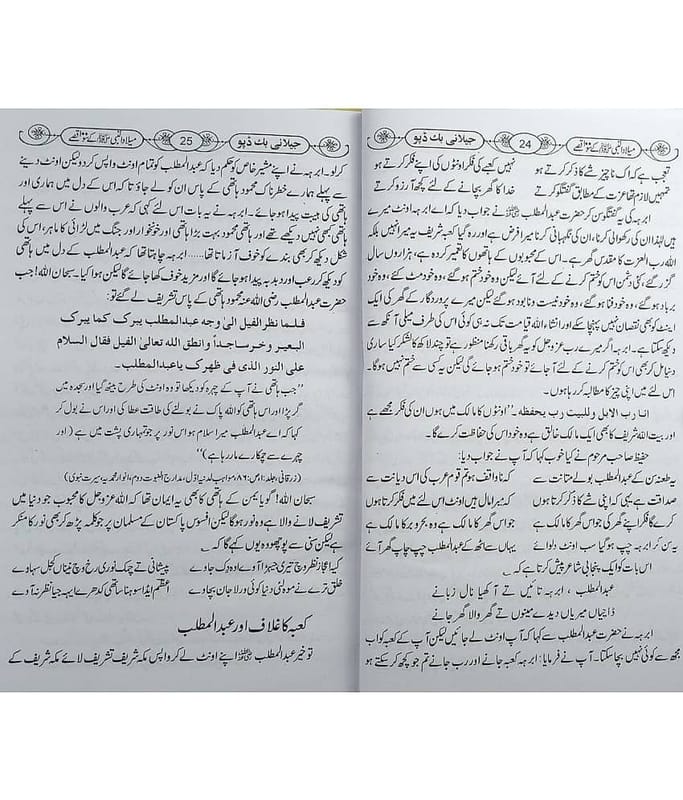 میلاد النبی ﷺ کے واقعے 24 جیلانی بک ڈپو
تعجب ہے اک ناچیز شے کا ذکر کرتے ہو نہیں کعبے کی فکر اونٹوں کی اپنے فکر کرتے ہو
تمہیں لازم تھا عزت کے مطابق گفتگو کرتے خدا کا گھر بچانے کے لئے کچھ آرزو کرتے
ابرہہ کی یہ گفتگو سن کر حضرت عبدالمطلب نے جواب دیا کہ اے ابرہہ اونٹ میرے
ہیں لہٰذا ان کی رکھوالی کرنا، ان کی نگہبانی کرنا میرا فرض ہے اور رہ گیا کعبہ شریف یہ میرا نہیں بلکہ
اللہ رب العزت کا مقدس گھر ہے۔ اس کے محبوبوں کے ہاتھوں کا تعمیر کردہ ہے، ہزاروں سال
گزر گئے، کئی دشمن اس کو ختم کرنے کے لئے آئے لیکن وہ خود ختم ہو گئے، وہ خود مٹ گئے، وہ خود
برباد ہو گئے، وہ خود فنا ہو گئے، وہ خود نیست و نابود ہو گئے لیکن میرے پروردگار کے گھر کی ایک
اینٹ کو بھی نقصان نہیں پہنچا سکے اور انشاء اللہ قیامت تک نہ ہی کوئی اس کی طرف میلی آنکھ سے
دیکھ سکتا ہے۔ ابرہہ اگر میرے رب عزوجل کو یہ گھر باقی رکھنا منظور ہے تو چند لاکھ کا لشکر کیا ساری
دنیا مل کر بھی اس کو ختم کرنے کے لئے آ جائے تو خود ختم ہو جائے گی لیکن یہ کسی سے ختم نہیں ہوگا۔
اس لئے میں اپنی چیز کا مطالبہ کر رہا ہوں۔
انا رب الابل وللبیت رب یحفظہ۔ "اونٹوں کا مالک میں ہوں ان کی فکر مجھے ہے
اور بیت اللہ شریف کا بھی ایک مالک خالق ہے وہ خود اس کی حفاظت کرے گا۔
حفیظ صاحب مرحوم نے کیا خوب کہا کہ آپ نے جواب دیا:
یہ طعنہ سن کے عبدالمطلب بولے متانت سے کہ ناواقف ہو تم قوم عرب کی اس دیانت سے
صداقت ہے یہی کہ اپنی شے کا ذکر کرتا ہوں کہ میرا مال ہیں اونٹ اس لئے میں فکر کرتا ہوں
کرے گا فکر اپنے گھر کی جو اس گھر کا مالک ہے جو اس گھر کا مالک ہے وہ بحر و بر کا مالک ہے
یہ سن کر ابرہہ چپ ہو گیا سب اونٹ دلوائے یہاں سے اٹھ کے عبدالمطلب چپ چاپ گھر آئے
اس بات کو ایک پنجابی شاعر پیش کرتا ہے کہ
عبدالمطلب، ابرہہ تائیں تے آکھیا نال زبانے
ڈاچیاں میریاں دیدے مینوں تے گھر والا گھر جانے
ابرہہ نے حضرت عبدالمطلب سے کہا کہ آپ اونٹ لے جائیں لیکن آپ کے کعبہ کو اب
مجھ سے کوئی نہیں بچا سکتا۔ آپ نے فرمایا: ابرہہ کعبہ جانے اور رب جانے تم جو کچھ کر سکتے ہو
میلاد النبی ﷺ کے واقعے 25 جیلانی بک ڈپو
کر لو۔ ابرہہ نے اپنے مشیر خاص کو حکم دیا کہ عبدالمطلب کو تمام اونٹ واپس کر دو لیکن اونٹ دینے
سے پہلے ہمارے خطرناک محمود ہاتھی کے پاس ان کو لے جاؤ تا کہ اس کے دل میں ہماری اور
ہاتھی کی ہیبت پیدا ہو جائے۔ ابرہہ نے یہ بات اس لئے کہی کہ عرب والوں نے اس سے پہلے
ہاتھی کبھی نہیں دیکھے تھے اور ہاتھی محمود بہت بڑا ہاتھی اور خونخوار اور جنگ میں لڑائی کا ماہر، اس کی
شکل دیکھ کر بھی بندے کو خوف آ تا تھا..... ابرہہ چاہتا تھا کہ عبدالمطلب کے دل میں ہاتھی
کو دیکھ کر رعب اور دبدبہ پیدا ہو جائے گا اور مزید خوف کھا جائے گا لیکن ہوا کیا۔ سبحان اللہ! جب
حضرت عبدالمطلب رضی اللہ عنہ محمود ہاتھی کے پاس تشریف لے گئے تو:
فلما نظر الفیل الیٰ وجہ عبدالمطلب یبرک کما یبرک
البعیر وخرساجداً وانطق اللہ تعالیٰ الفیل فقال السلام
علی النور الذی فی ظھرک یاعبدالمطلب۔
"جب ہاتھی نے آپ کے چہرہ کو دیکھا تو وہ اونٹ کی طرح بیٹھ گیا اور سجدہ میں
گر پڑا اور اس ہاتھی کو اللہ پاک نے بولنے کی طاقت عطا کی اور اس نے بول کر
کہا کہ اے عبدالمطلب میرا سلام ہو اس نور پر جو تمہاری پشت میں ہے (اور
چہرے سے چمکارے مار رہا ہے)"
(زرقانی، جلد۱، ص:۸۶، مواہب لدنیہ اول، مدارج النبوت دوم، انوار محمدیہ، سیرت نبوی)
سبحان اللہ! گویا یمن کے ہاتھی کا بھی یہ ایمان تھا کہ اللہ عزوجل کا محبوب جو دنیا میں
تشریف لانے والا ہے وہ نور ہوگا لیکن افسوس پاکستان کے مسلمان پر جو کلمہ پڑھ کر بھی نور کا منکر
ہے لیکن سنی سے پوچھو وہ یوں کہے گا کہ
کیا اعجاز نظر وچ تیری جیہڑا آوے اوہ دِک جاوے پیشانی تے چمک نوری رخ وچ نیناں کجل سہاوے
خلق ترے نے موہ لئی دنیا کوئی ورلا جان بچاوے اعظم ایڈا سوہنا ساتھی کدھرے ایہہ جیا نظر نہ آوے
کعبہ کا غلاف اور عبدالمطلب
تو خیر عبدالمطلب اپنے اونٹ لے کر واپس مکہ شریف تشریف لائے مکہ شریف کے